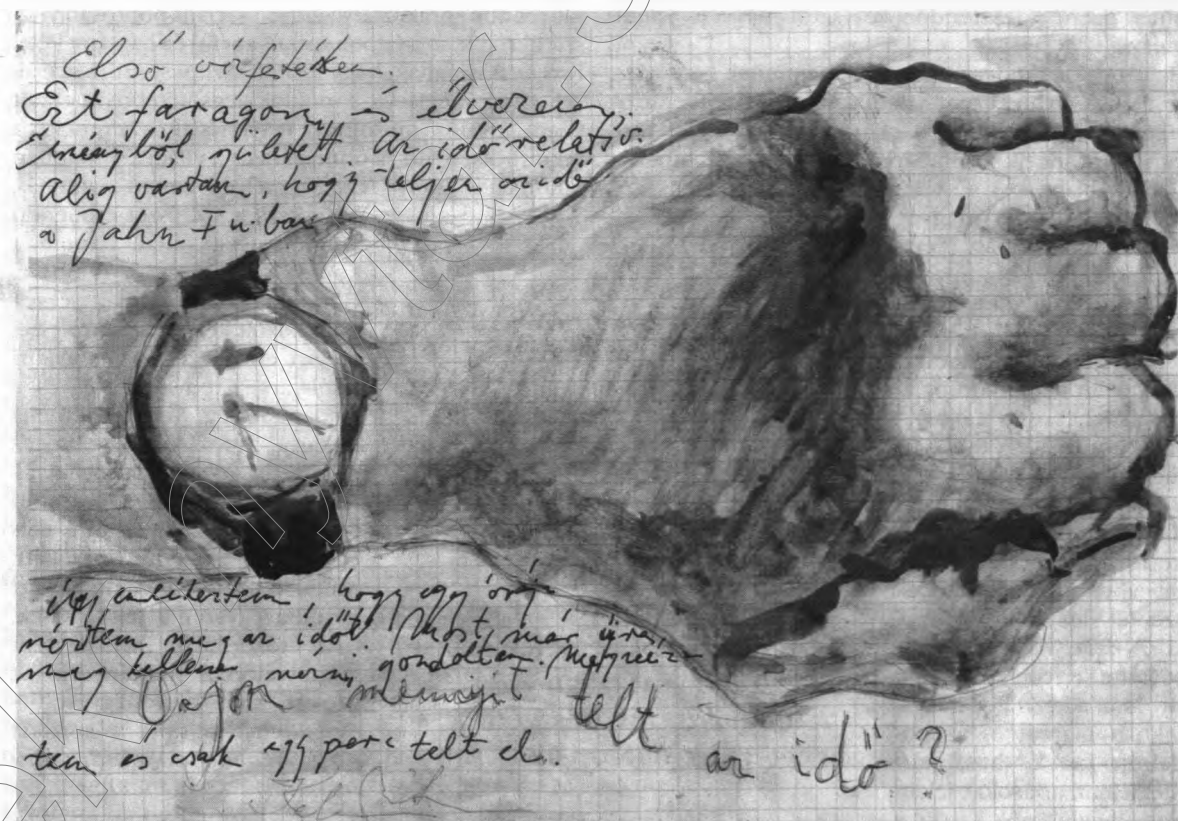 Első vízfestésem.
Ezt faragom, és élvezem,
Élményből született az idő relatív.
alig vártam, hogy teljen az idő
a Jahn F u.-ban
úgy említettem, hogy egy órája
néztem meg az időt. Most már újra
meg kellene nézni, gondoltam. Megnéz-
Vajon mennyit telt
az idő?
tem és csak egy perc telt el.